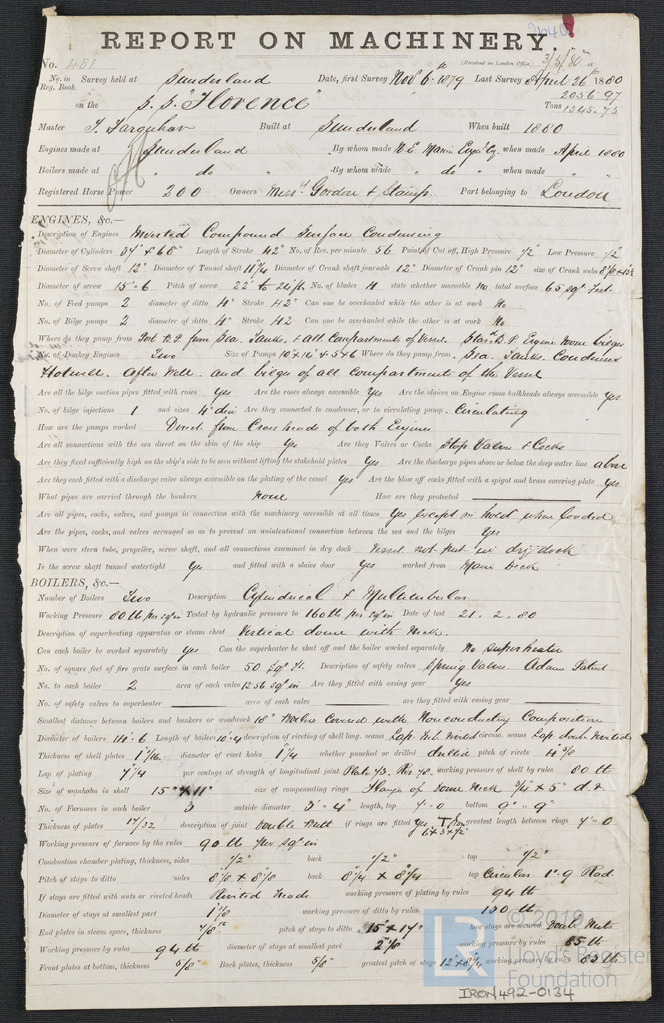 2640
REPORT ON MACHINERY.
No. 481 (Received in London Office 3/5/80
No. in Reg. Book. Survey held at Sunderland Date, first Survey Novr 6th 1879 Last Survey April 26th 1880
on the S.S. "Florence" Tons 2056.97 1345.75
Master T. Farquhar Built at Sunderland When built 1880
Engines made at Sunderland By whom made N.E. Marine Engg Co. when made April 1880
Boilers made at " do " By whom made " do " when made "
Registered Horse Power 200 Owners Messrs Gordon & Stamp Port belonging to London
ENGINES, &c.—
Description of Engines Inverted Compound Surface Condensing
Diameter of Cylinders & 68" Length of Stroke 42" No. of Rev. per minute 56 Point of Cut off, High Pressure 1/2 Low Pressure 1/2
Diameter of Screw shaft 12" Diameter of Tunnel shaft 11 1/4 Diameter of Crank shaft journals 12" Diameter of Crank pin 12" size of Crank webs
Diameter of screw 15"-6 Pitch of screw 22 to 24 ft. No. of blades 4 state whether moveable no total surface 65 sqr feet.
No. of Feed pumps 2 diameter of ditto 4" Stroke 42" Can one be overhauled while the other is at work No
No. of Bilge pumps 2 diameter of ditto 4" Stroke 42 Can one be overhauled while the other is at work No
Where do they pump from Port B.P. from Sea. Tanks & all Compartments of Vessel. Star. B.P. Engine Room bilges
No. of Donkey Engines Two Size of Pumps 10"x10" & 5x6 Where do they pump from Sea. Tanks. Condenser
Hotwell. After Well. and bilges of all compartments of the Vessel
Are all the bilge suction pipes fitted with roses Yes Are the roses always accessible Yes Are the sluices on Engine room bulkheads always accessible Yes
No. of bilge injections 1 and sizes 4" dia Are they connected to condenser, or to circulating pump Circulating
How are the pumps worked from Crossheads of both Engines
Are all connections with the sea direct on the skin of the ship Yes Are they Valves or Cocks Stop Valves & Cocks
Are they fixed sufficiently high on the ship's side to be seen without lifting the stokehold plates Yes Are the discharge pipes above or below the deep water line above
Are they each fitted with a discharge valve always accessible on the plating of the vessel Yes Are the blow off cocks fitted with a spigot and brass covering plate Yes
What pipes are carried through the bunkers None How are they protected
Are all pipes, cocks, valves, and pumps in connection with the machinery accessible at all times Yes except in hold when loaded
Are the pipes, cocks, and valves arranged so as to prevent an unintentional connection between the sea and the bilges Yes
When were stern tube, propeller, screw shaft, and all connections examined in dry dock Vessel not put in dry dock
Is the screw shaft tunnel watertight Yes and fitted with a sluice door Yes worked from Main Deck
BOILERS, &c.—
Number of Boilers Two Description Cylindrical & Multitubular
Working Pressure 80 lb per sq in Tested by hydraulic pressure to 160 lb per sq in Date of test 21.2.80
Description of superheating apparatus or steam chest Vertical dome with Neck.
Can each boiler be worked separately Yes Can the superheater be shut off and the boiler worked separately No superheater
No. of square feet of fire grate surface in each boiler 50 sqr ft. Description of safety valves Spring Valves. Adams Patent
No. to each boiler 2 area of each valve 12.56 sqr in Are they fitted with easing gear Yes
No. of safety valves to superheater area of each valve are they fitted with easing gear
Smallest distance between boilers and bunkers or woodwork 18" Boilers covered with Nonconducting Composition
Diameter of boilers 14-6 Length of boilers 10-4 description of riveting of shell long. seams Lap riveted circum. seams Lap riveted
Thickness of shell plates 1 1/16 diameter of rivet holes 1 1/4 whether punched or drilled drilled pitch of rivets 4 5/8
Lap of plating 7 1/4 per centage of strength of longitudinal joint Plate 73. Riv. 78. working pressure of shell by rules 80 lb
Size of manholes in shell 15" x 11" size of compensating rings Flange of Dome Neck 3/4 x 5" d.r.
No. of Furnaces in each boiler 3 outside diameter 3'-4" length, top 7'-0 bottom 9'-9"
Thickness of plates 17/32 description of joint Double Butt if rings are fitted Yes T Iron greatest length between rings 4"-0
Working pressure of furnace by the rules 90 lb per sq in
Combustion chamber plating, thickness, sides 1/2" back 1/2" top 1/2"
Pitch of stays to ditto sides 8 1/8 x 8 1/8 back 8 1/4 x 8 1/4 top Circular 1'-9 Rad
If stays are fitted with nuts or riveted heads Riveted Heads working pressure of plating by rules 94 lb
Diameter of stays at smallest part 1 3/8 working pressure of ditto by rules 100 lb
End plates in steam space, thickness 7/8" pitch of stays to ditto 15" x 14" how stays are secured Double Nuts
Working pressure by rules 94 lb diameter of stays at smallest part 2 1/8" working pressure by rules 85 lb
Front plates at bottom, thickness 5/8" Back plates, thickness 5/8" greatest pitch of stays working pressure by rules 82 lb
© 2019
Lloyd's Register
Foundation
IRON492-0134